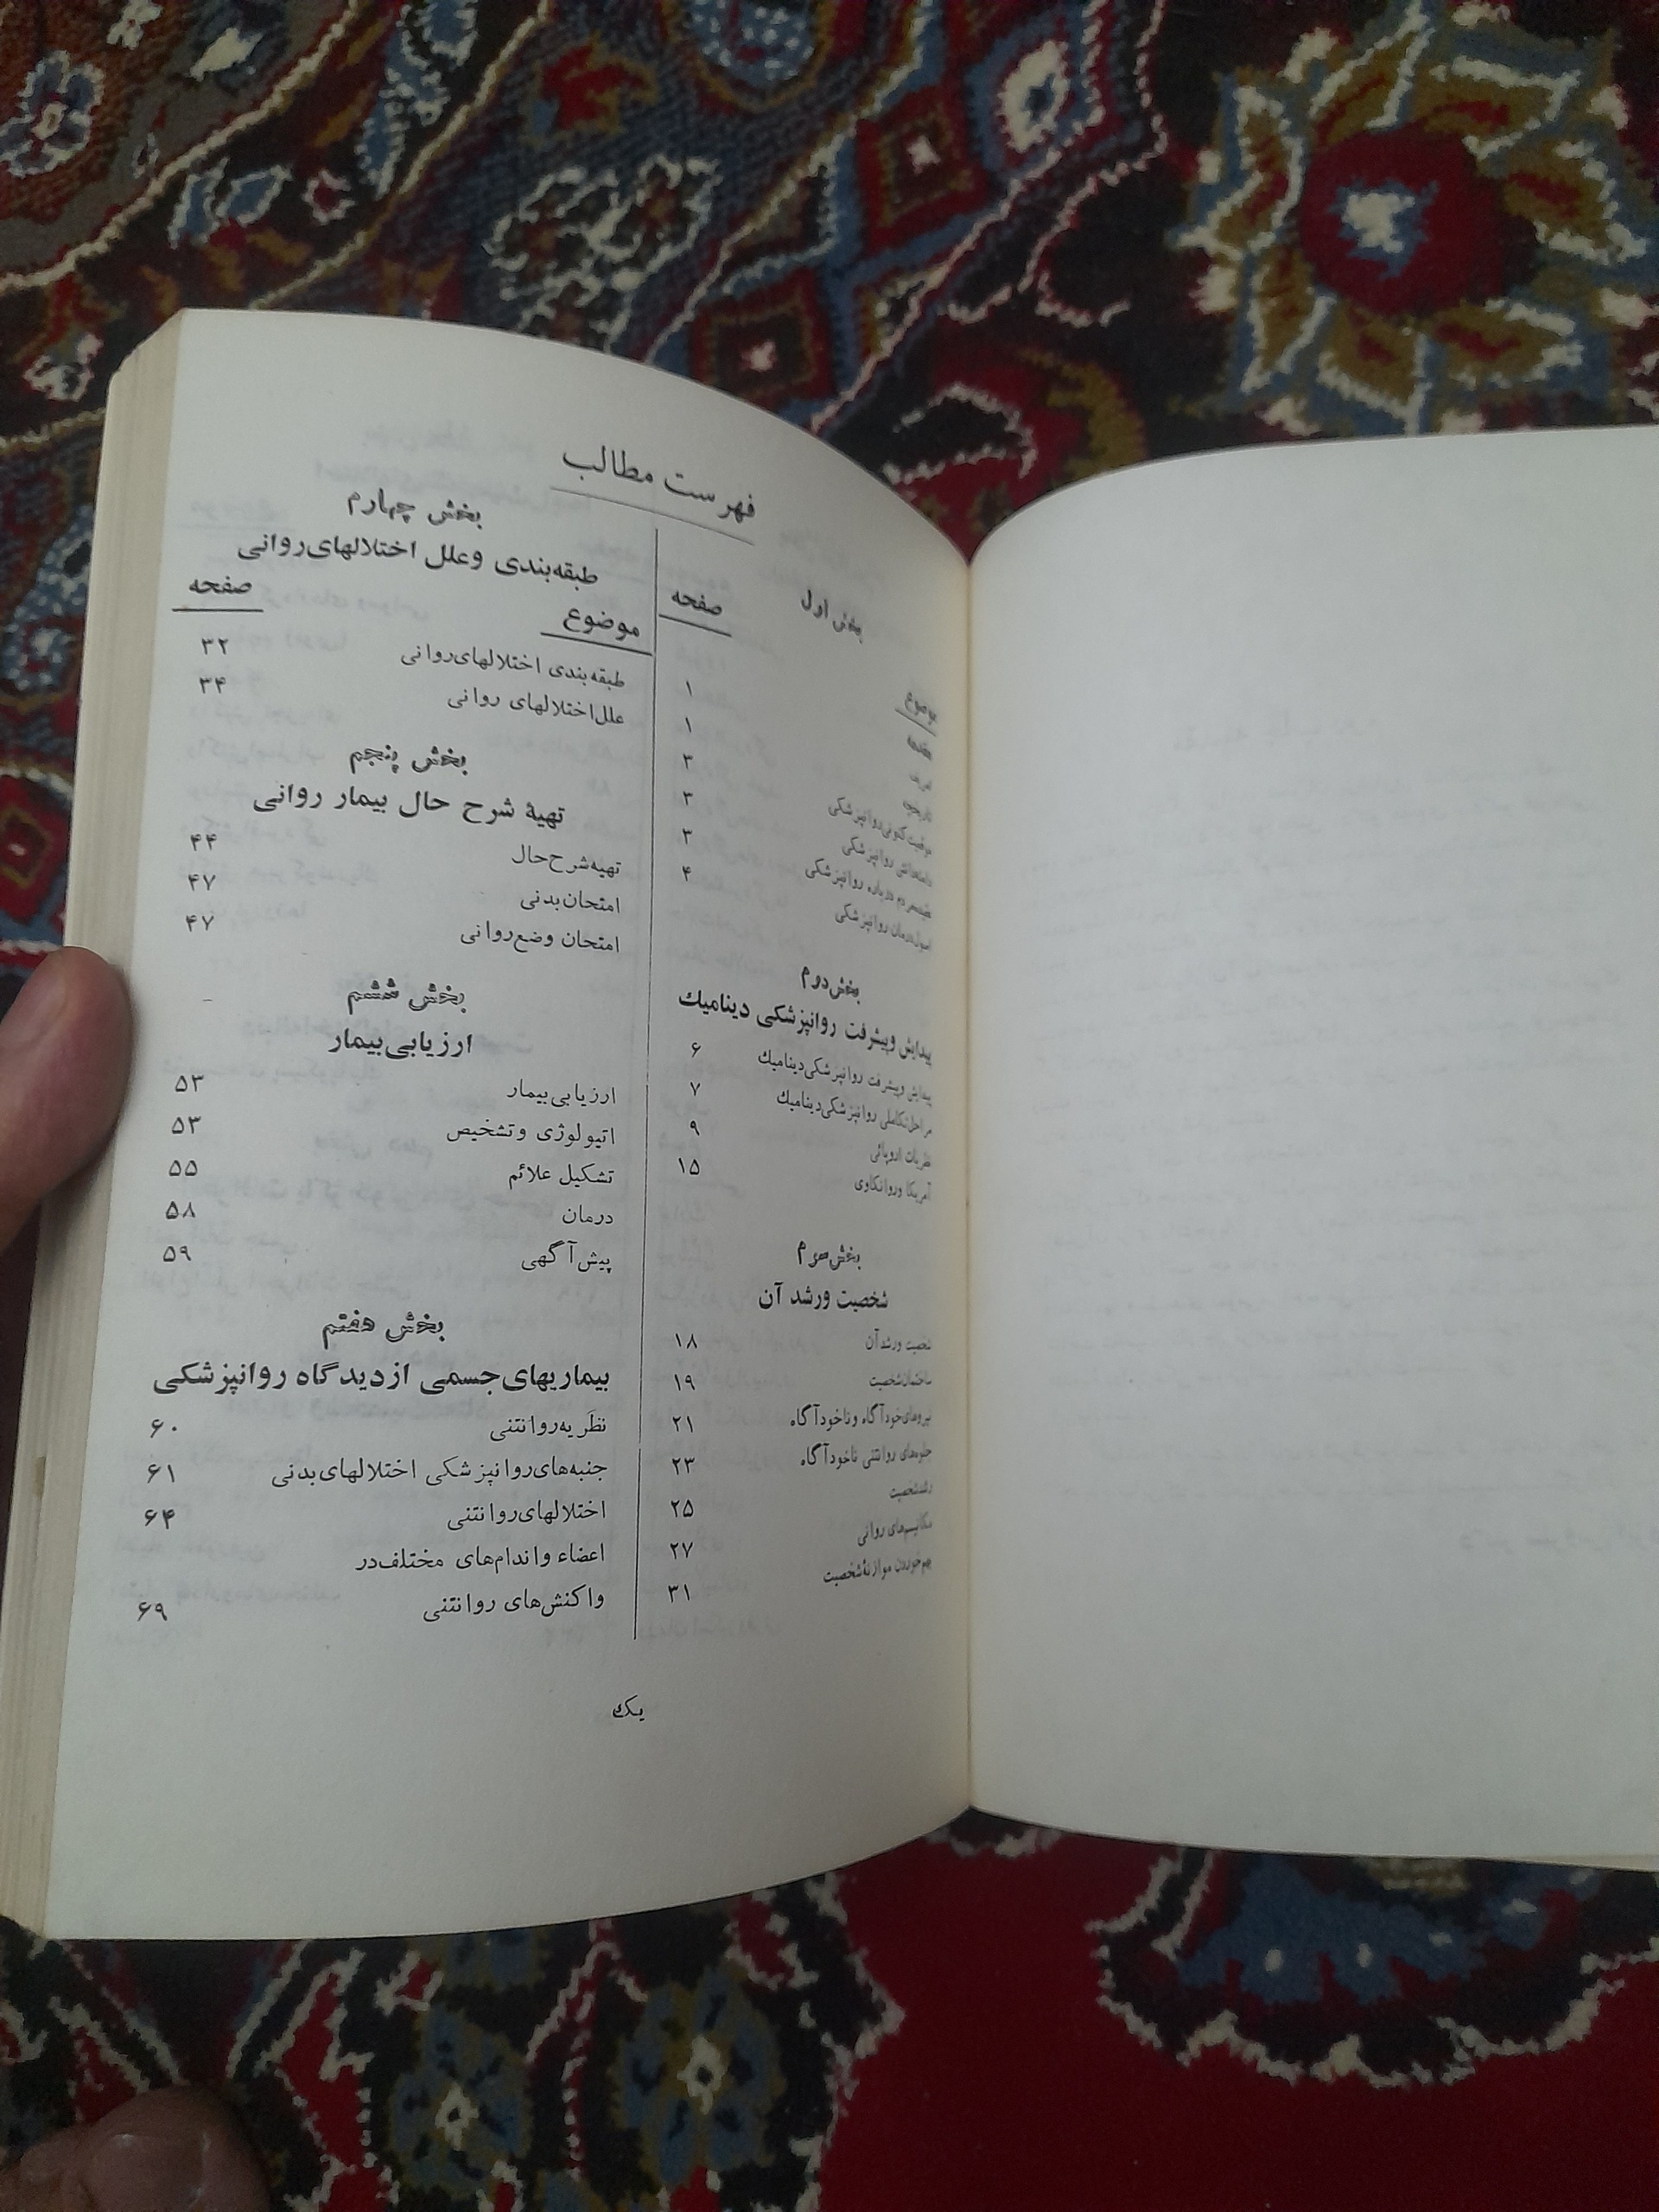 فهرست مطالب
بخش اول
موضوع صفحه
مقدمه ۱
تعریف ۱
تاریخچه ۳
موقعیت کنونی روانپزشکی ۳
دامنه دانش روانپزشکی ۳
عقیده مردم درباره روانپزشکی ۴
اصول درمان روانپزشکی
بخش دوم
پیدایش وپیشرفت روانپزشکی دینامیك
پیدایش وپیشرفت روانپزشکی دینامیك ۶
مراحل تکاملی روانپزشکی دینامیك ۷
نظریات اروپائی ۹
آمریکا وروانکاوی ۱۵
بخش سوم
شخصیت ورشد آن
شخصیت ورشد آن ۱۸
ساختمان شخصیت ۱۹
نیروهای خودآگاه وناخودآگاه ۲۱
جلوه‌های روانتنی ناخودآگاه ۲۳
رشد شخصیت ۲۵
مکانیسم‌های روانی ۲۷
بهم خوردن موازنهٔ شخصیت ۳۱
بخش چهارم
طبقه‌بندی وعلل اختلالهای روانی
موضوع صفحه
طبقه‌بندی اختلالهای روانی ۳۲
علل اختلالهای روانی ۳۴
بخش پنجم
تهیهٔ شرح حال بیمار روانی
تهیه شرح حال ۴۴
امتحان بدنی ۴۷
امتحان وضع روانی ۴۷
بخش ششم
ارزیابی بیمار
ارزیابی بیمار ۵۳
اتیولوژی وتشخیص ۵۳
تشکیل علائم ۵۵
درمان ۵۸
پیش‌آگهی ۵۹
بخش هفتم
بیماریهای جسمی از دیدگاه روانپزشکی
نظریه روانتنی ۶۰
جنبه‌های روانپزشکی اختلالهای بدنی ۶۱
اختلالهای روانتنی ۶۴
اعضاء واندام‌های مختلف در
واکنش‌های روانتنی ۶۹
یك